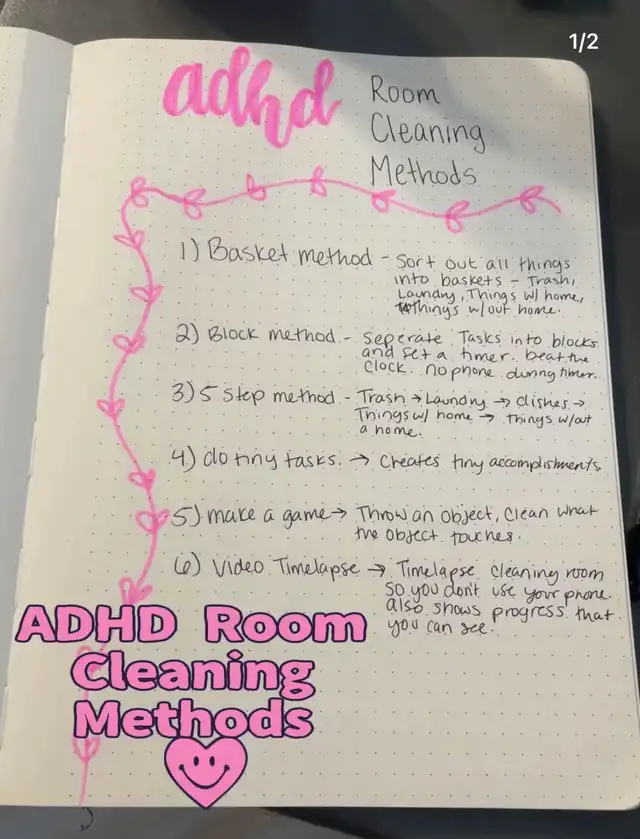 1/2
adhd
Room
Cleaning
Methods
1) Basket method - Sort out all things
into baskets - Trash,
Laundry, Things w/ home,
things w/out home.
2) Block method - seperate Tasks into blocks
and set a timer. beat the
clock. no phone during timer.
3) 5 step method - Trash → Laundry → dishes →
Things w/ home → things w/out
a home.
4) do tiny tasks. → creates tiny accomplishments
5) make a game → Throw an object, clean what
the object touches.
6) Video Timelapse → Timelapse cleaning room
so you don't use your phone.
also shows progress that
you can see.
ADHD Room
Cleaning
Methods